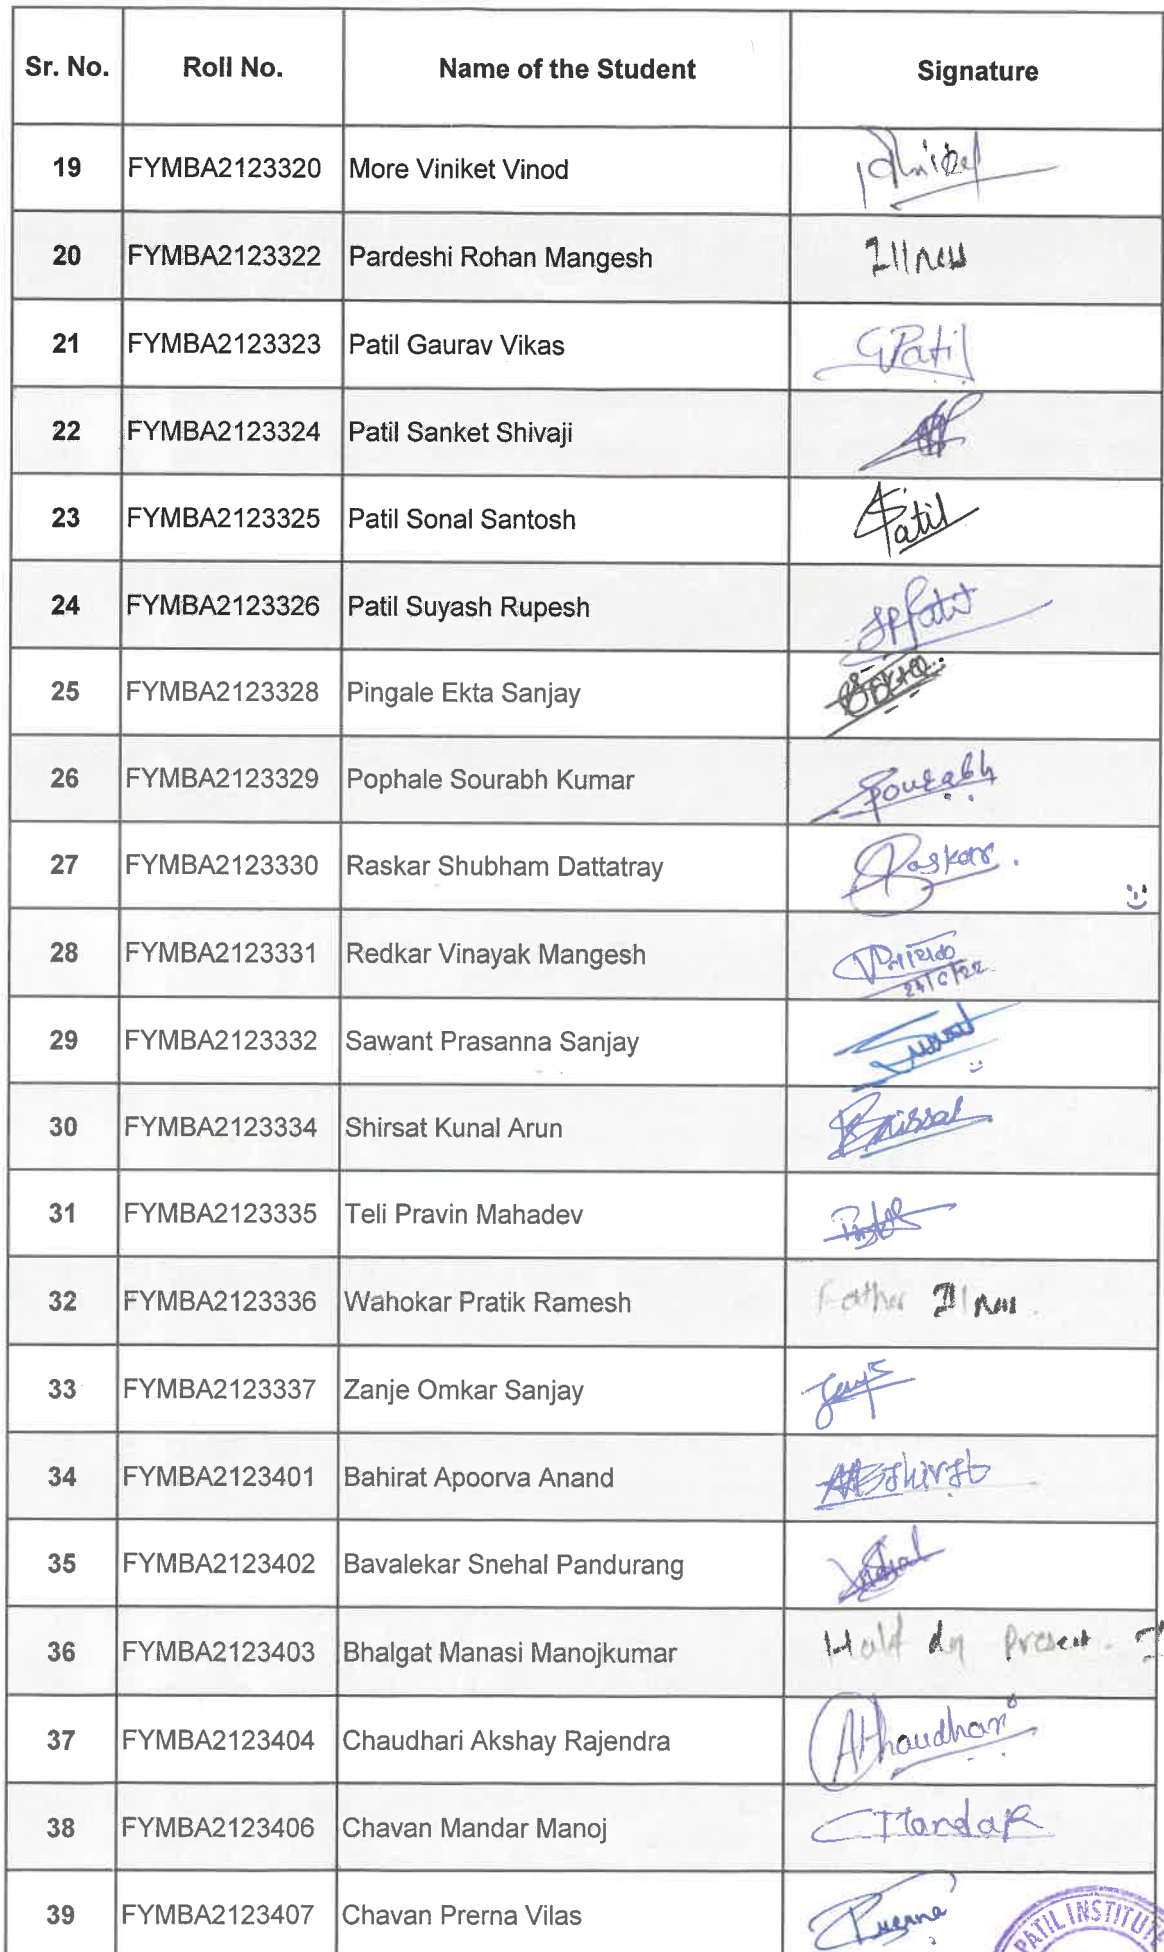 Sr. No. Roll No. Name of the Student Signature
19 FYMBA2123320 More Viniket Vinod
20 FYMBA2123322 Pardeshi Rohan Mangesh Illness
21 FYMBA2123323 Patil Gaurav Vikas GPatil
22 FYMBA2123324 Patil Sanket Shivaji
23 FYMBA2123325 Patil Sonal Santosh SPatil
24 FYMBA2123326 Patil Suyash Rupesh
25 FYMBA2123328 Pingale Ekta Sanjay
26 FYMBA2123329 Pophale Sourabh Kumar Sourabh
27 FYMBA2123330 Raskar Shubham Dattatray Raskar
28 FYMBA2123331 Redkar Vinayak Mangesh
29 FYMBA2123332 Sawant Prasanna Sanjay
30 FYMBA2123334 Shirsat Kunal Arun
31 FYMBA2123335 Teli Pravin Mahadev
32 FYMBA2123336 Wahokar Pratik Ramesh Father Illness
33 FYMBA2123337 Zanje Omkar Sanjay
34 FYMBA2123401 Bahirat Apoorva Anand
35 FYMBA2123402 Bavalekar Snehal Pandurang
36 FYMBA2123403 Bhalgat Manasi Manojkumar Half day Present.
37 FYMBA2123404 Chaudhari Akshay Rajendra AChaudhari
38 FYMBA2123406 Chavan Mandar Manoj Mandar
39 FYMBA2123407 Chavan Prerna Vilas Prerna
PATIL INSTITUTE